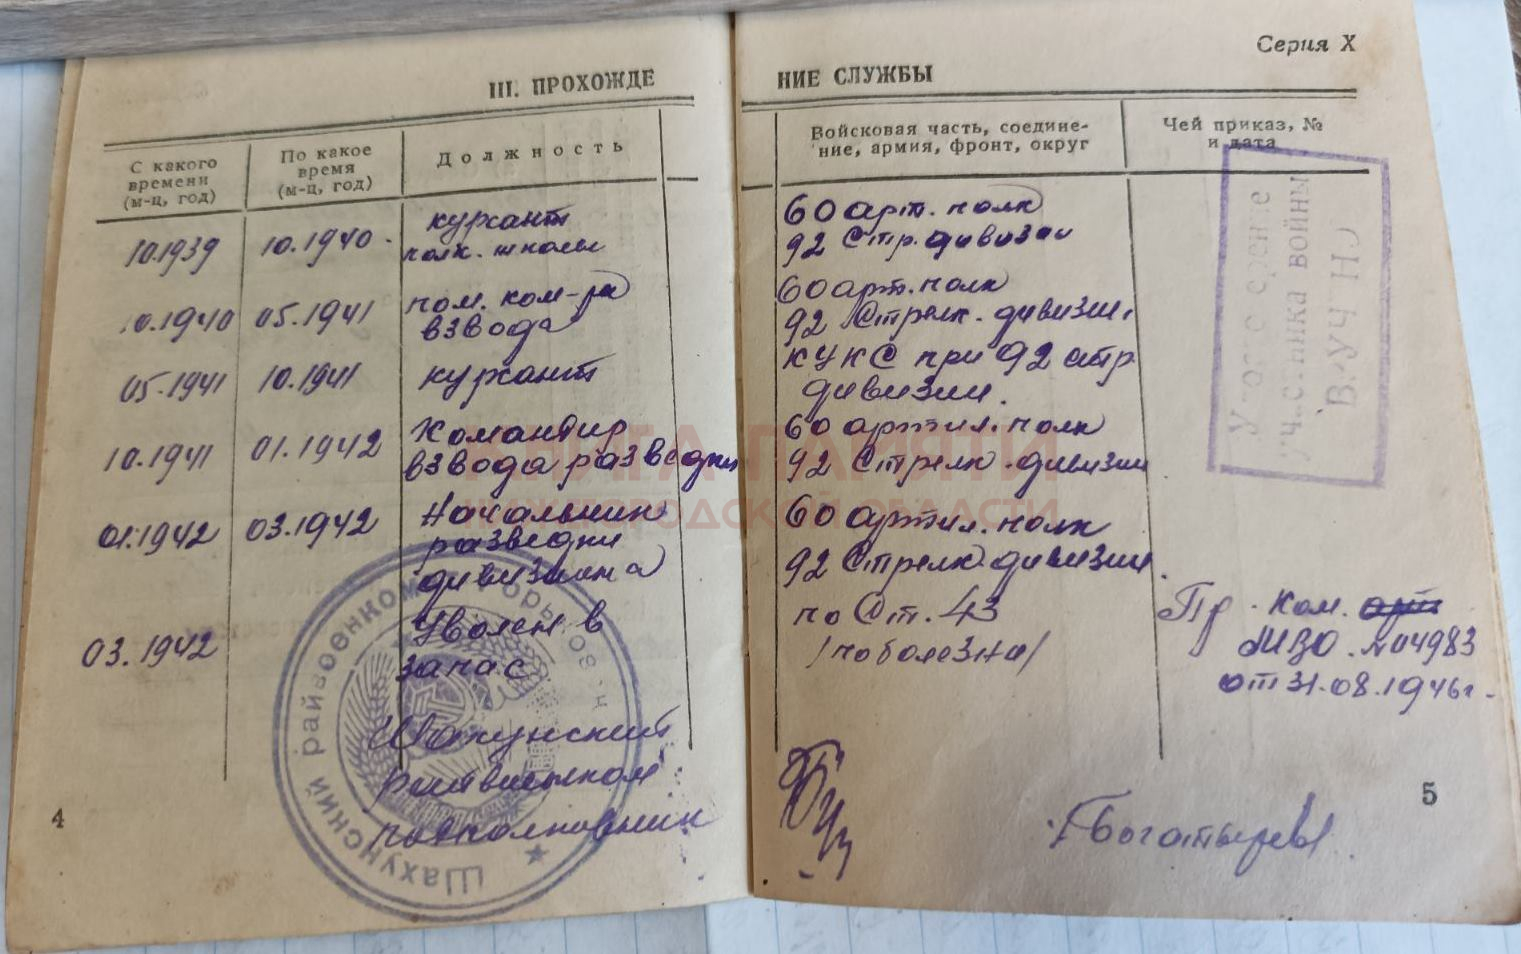 Серия X
III. ПРОХОЖДЕ
НИЕ СЛУЖБЫ
С какого
времени
(м-ц, год)
По какое
время
(м-ц, год)
Должность
Войсковая часть, соедине-
ние, армия, фронт, округ
Чей приказ, №
и дата
10.1939
10.1940
курсант
полк. школы
60 арт. полк
92 Стр. дивизии
10.1940
05.1941
пом. ком-ра
взвода
60 арт. полк
92 Стрелк. дивизии
05.1941
10.1941
курсант
КУКС при 92 стр
дивизии.
10.1941
01.1942
Командир
взвода разведки
60 артил. полк
92 Стрелк. дивизии
01.1942
03.1942
Начальник
разведки
дивизиона
60 артил. полк
92 Стрелк. дивизии
03.1942
Уволен в
запас
по Ст. 43
/по болезни/
Пр. Ком. арт
МВО. №04983
от 31.08.1946г.
Шахунский
райвоенком
подполковник
Богатырев
Шахунский райвоенкомат Горьков
участника войны
КНИГА ПАМЯТИ
НИЖЕГОРОДСКОЙ ОБЛАСТИ
4
5